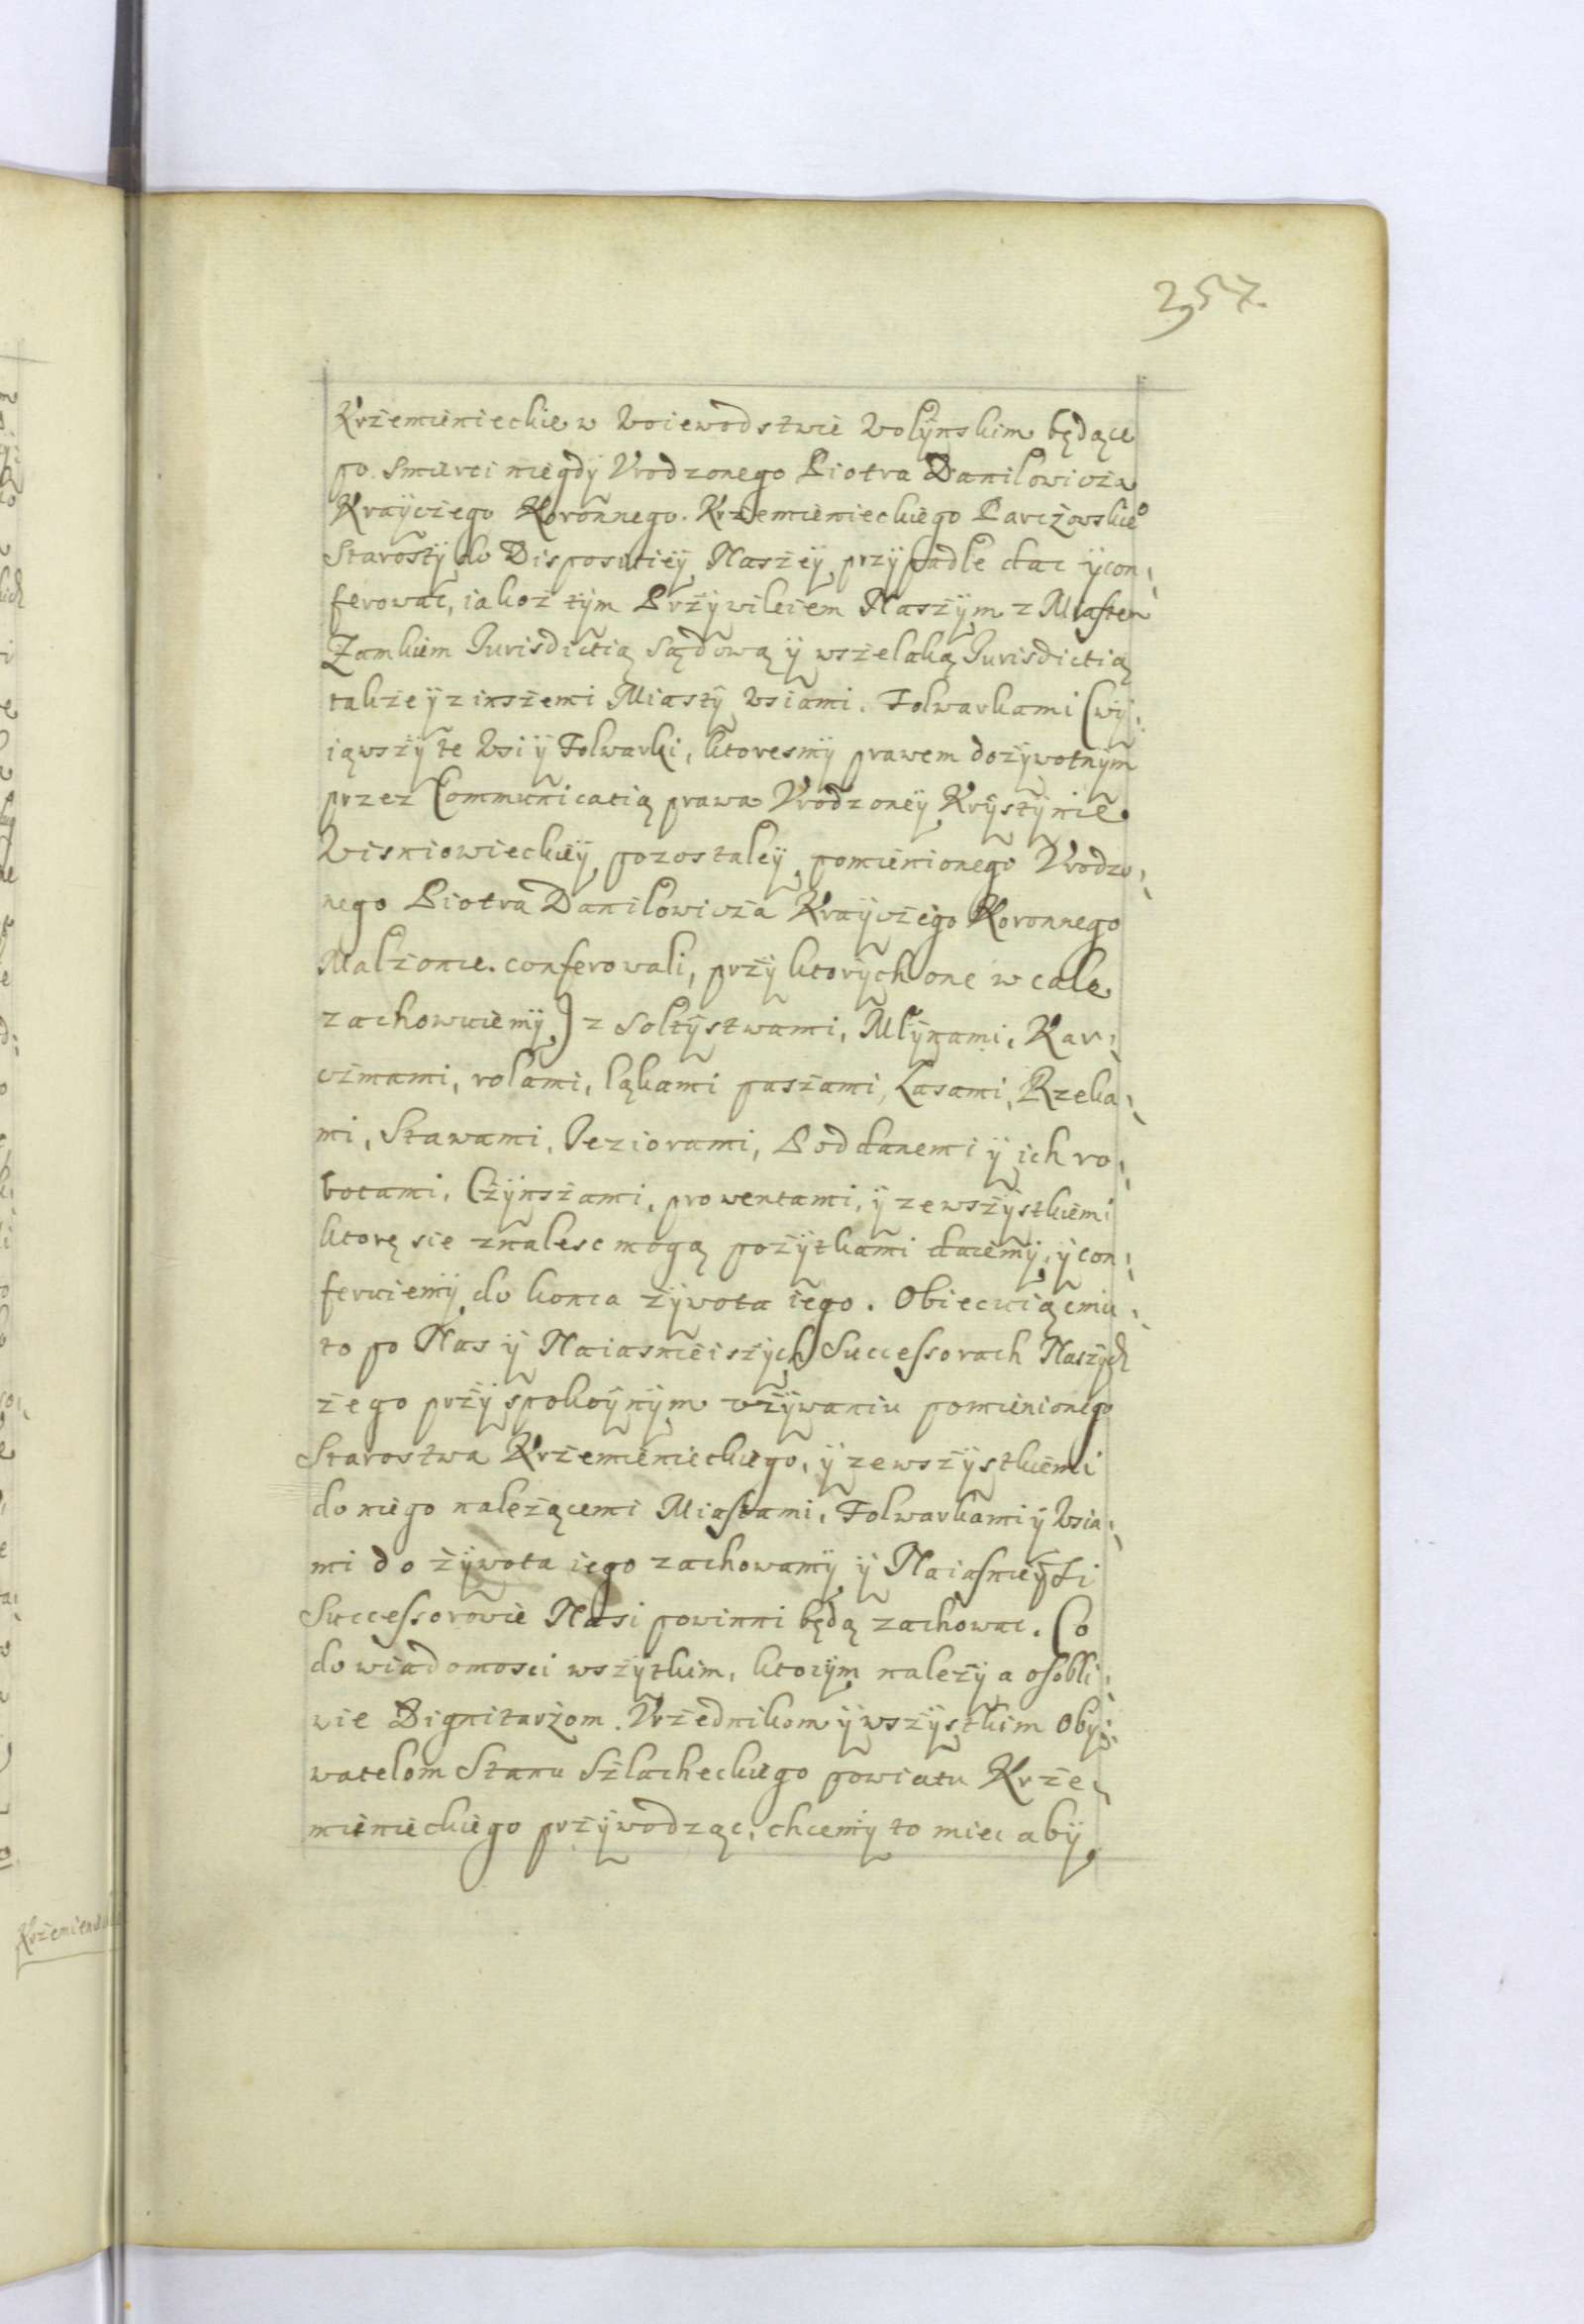 357.
Krżemienieckie w Woiewodstwie Wolÿnskim będące
po smierci niegdÿ Urodzonego Piotra Danilowicża
Kraÿcżego Koronnego. Krżemienieckiego Parcżowskie⁰
Starostÿ do Disposiciÿ Naszeÿ przÿpadle dac ÿ con:
ferowac, iakoż tÿm Przÿwileiem Naszÿm z Miastem
Zamkiem Jurisdictią Sądową ÿ wszelaką Jurisdictią
także ÿ z inszemi Miastÿ Wsiami. Folwarkami (wÿ:
iąwszÿ te Wsi ÿ Folwarki, ktoresmÿ prawem dożÿwotnÿm
przez Communicatią prawa Urodzoneÿ Krÿstÿnie
Wisniowieckieÿ pozostaleÿ pomienionego Urodzo:
nego Piotra Danilowicża Kraÿcżego Koronnego
Malżonce. conferowali, przÿ ktorÿch one w cale
zachowuiemÿ) z Soltÿstwami, Mlÿnami, Kar:
cżmami, rolami, ląkami paszami, Lasami, Rzeka:
mi, Stawami, Jeziorami, Poddanemi ÿ ich ro:
botami, Cżÿnszami, prowentami, ÿ ze wszÿstkiemi
ktorę się znalesc mogą pożÿtkami daiemÿ, ÿ con:
feruiemÿ do konca żÿwota iego. Obiecuiąc mu:
to po Nas ÿ Naiasnieiszÿch Successorach Naszÿch
że go przÿ spokoÿnÿm użÿwaniu pomienionego
Starostwa Krżemienieckiego, ÿ ze wszÿstkiemi
do niego należącemi Miastami, Folwarkami ÿ Wsia:
mi do żÿwota iego zachowamÿ ÿ Naiasnieÿsi
Successorowie Nasi powinni będą zachowac. Co
do wiadomosci wszÿtkim, ktorÿm należÿ a osobli:
wie Dignitarżom. Urżednikom ÿ wszÿstkim Obÿ:
watelom Stanu Szlacheckiego powiatu Krże:
mienieckiego przÿwodząc, chcemÿ to miec abÿ